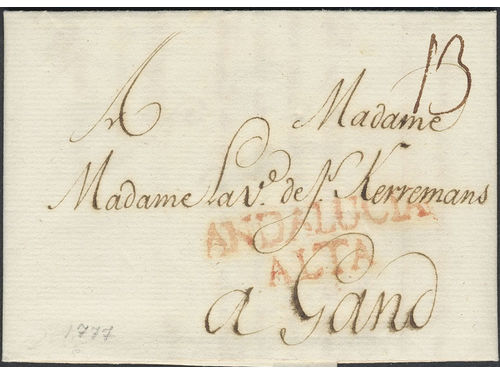 13
A Madame
Madame La Ve. de J. Kerremans
ANDALUCIA
ALTA
a Gand
1777